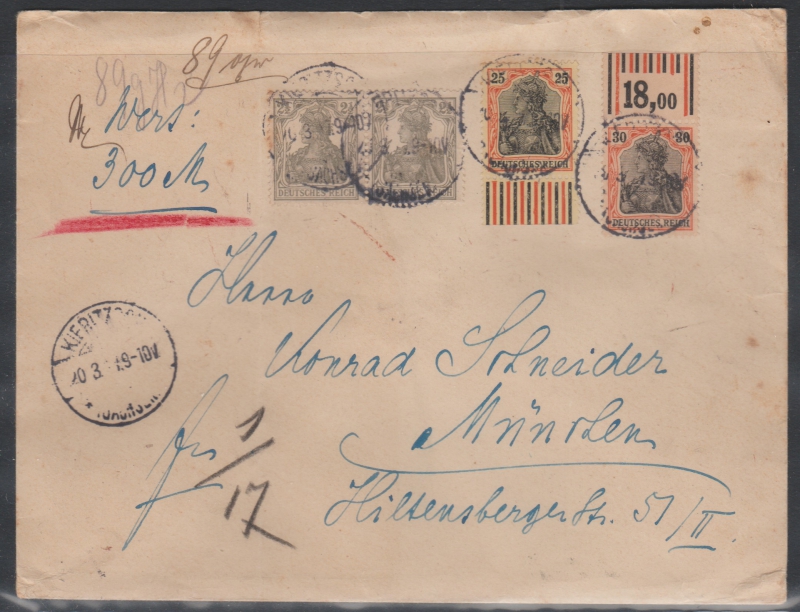 89 gr
Wert:
300 M
2½ 2½
DEUTSCHES REICH
25 25
DEUTSCHES REICH
18,00
30 30
DEUTSCHES REICH
Herrn
Konrad Schneider
München
Hiltensbergerstr. 51/II
fr
1/17
KIERITZSCH
20.3. 9-10V